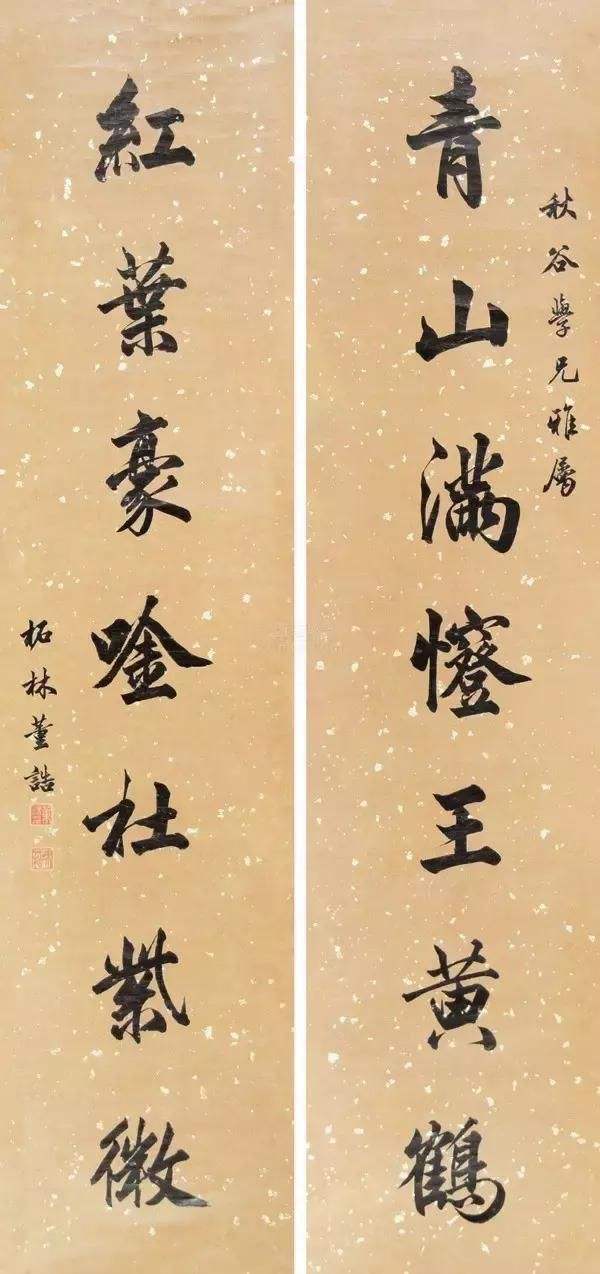 秋谷學兄雅屬
青山滿王黃鶴
紅葉豪唫杜紫微
柘林董誥